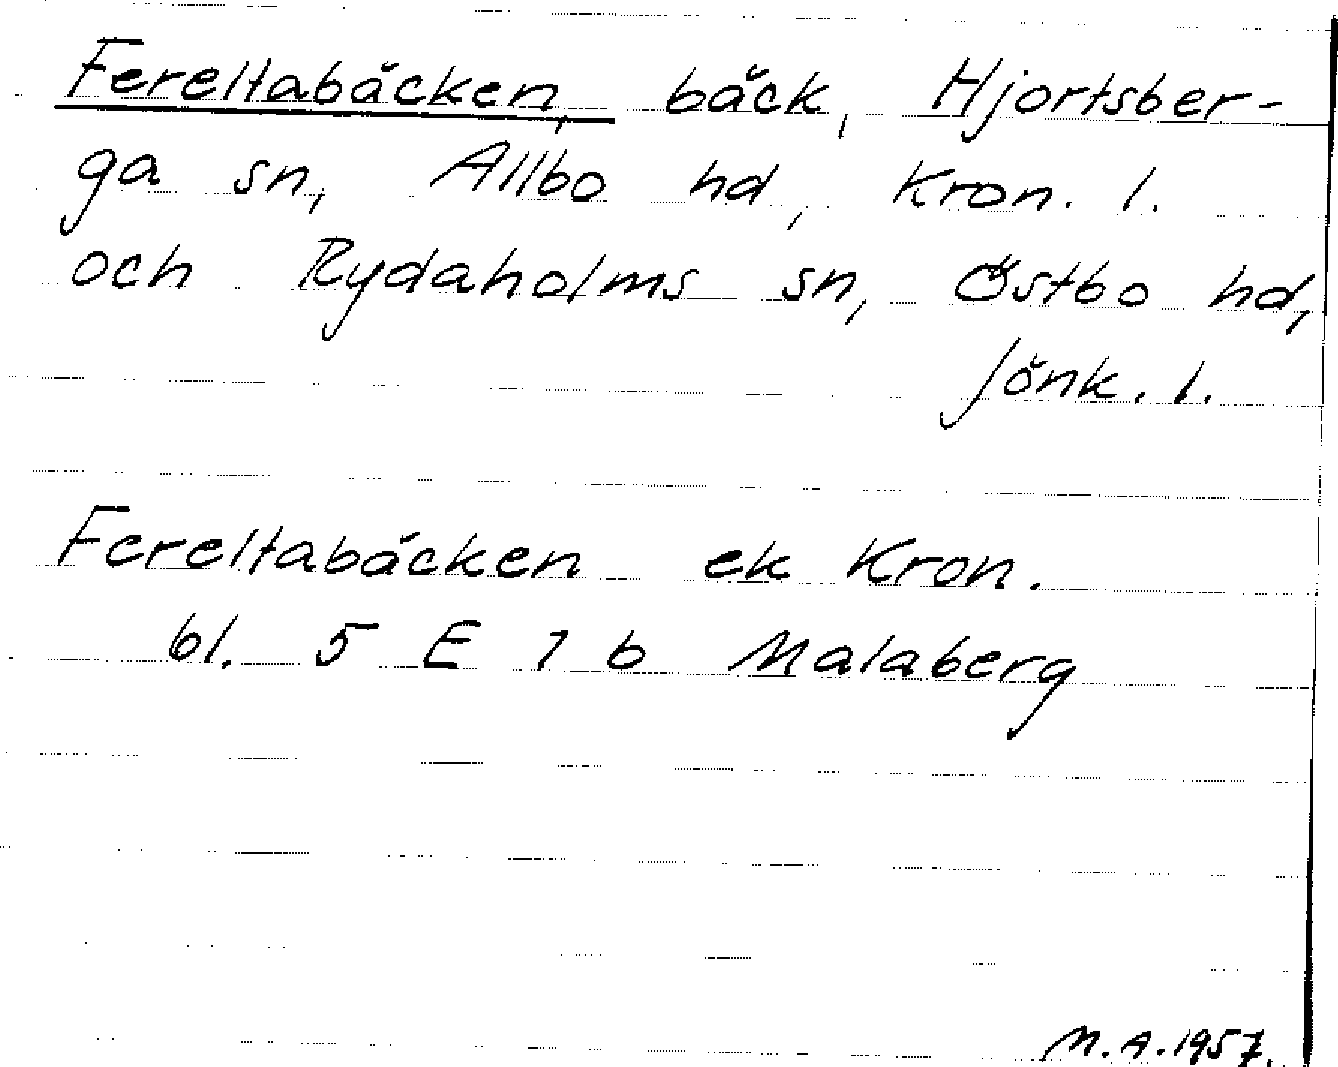 Fereltabäcken, bäck, Hjortsber-
ga sn, Allbo hd, Kron. l.
och Rydaholms sn, Östbo hd,
Jönk. l.
Fereltabäcken ek Kron.
bl. 5 E 1 b Malaberg
M.A. 1957.